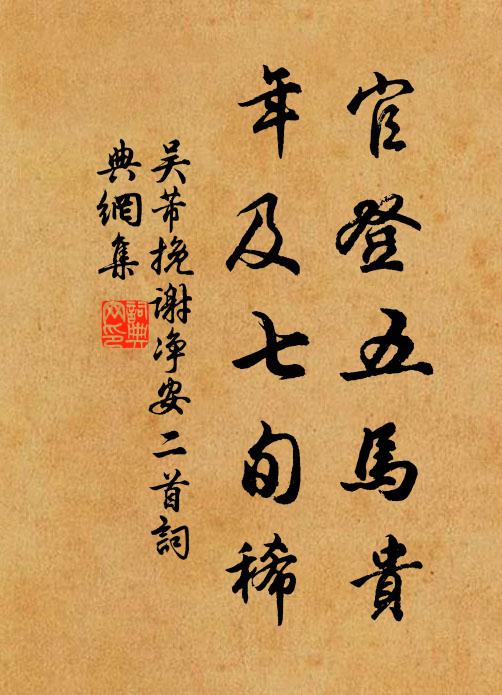 官登五馬貴
年及七旬稀
吴芾挽谢净安二首詞
典網集
詞典
网印